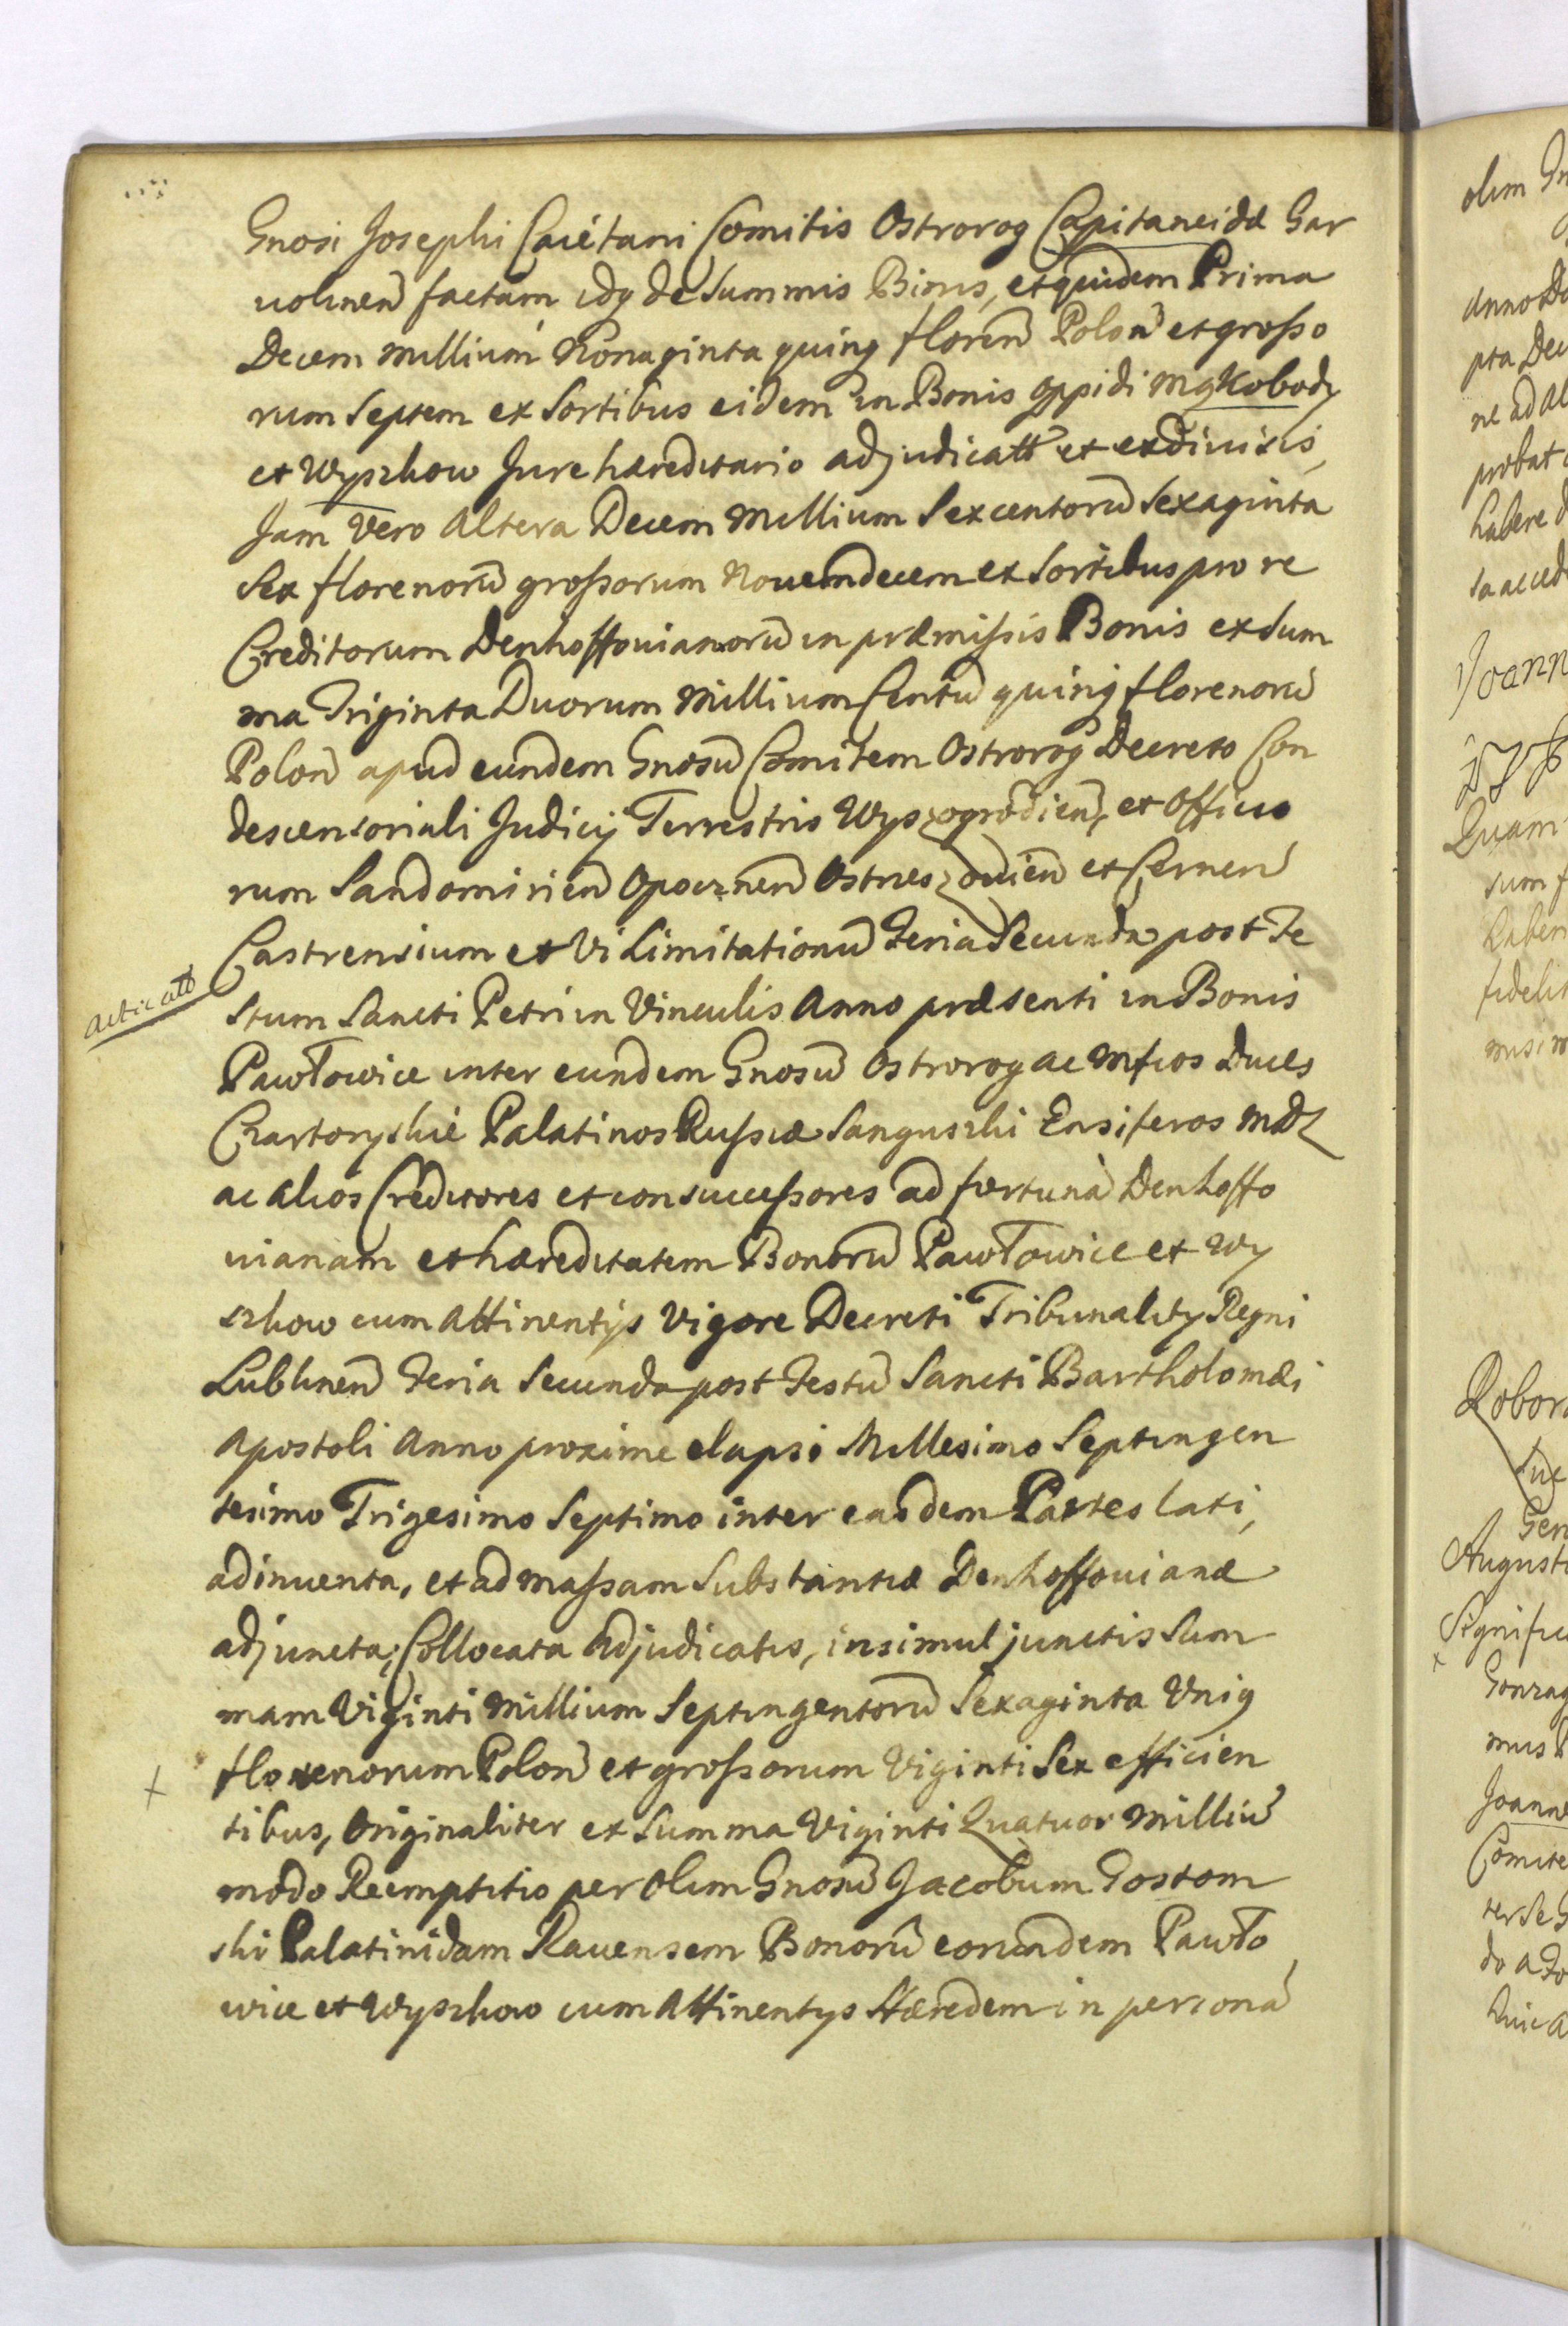 Gnosi Josephi Caietani Comitis Ostrorog Capitaneidæ Gar
uolinen̄ factam idq de Summis Binis, et quidem Prima
Decem Millium Nonaginta quinq floren̄ Polon̄ et grosso
rum Septem ex Sortibus eidem in Bonis oppidi Mąkobody
et Wyszkow Jure hæreditario adjudicatt et exdiuisis,
Jam Vero Altera Decem Millium Sexcentorū Sexaginta
Sex florenorū grossorum Nouemdecem ex Sortibus pro re
Creditorum Denhoffouianorū in præmissis Bonis ex Sum
ma Triginta Duorum Millium Centū quinq florenorū
Polon̄ apud eundem Gnosū Comitem Ostrorog Decreto Con
descensoriali Judicij Terrestris Wyszogrodien̄, et Officio
rum Sandomirien̄ Opocznen̄ Ostrzes zouien̄ et Cernen̄
Castrensium et Vi Limitationū Feria Secunda post Fe
stum Sancti Petri in Vinculis Anno præsenti in Bonis
Pawłowice inter eundem Gnosū Ostrorog ac Mfcos Duces
Czartoryskie Palatinos Russiæ Sanguszki Ensiferos MDL
ac alios Creditores et consuccessores ad fortunā Denhoffo
uianam et hæreditatem Bonorū Pawłowice et Wy
szkow cum Attinentijs Vigore Decreti Tribunalitij Regni
Lublinen̄ Feria Secunda post Festū Sancti Bartholomæi
Apostoli Anno proxime elapso Millesimo Septingen
tesimo Trigesimo Septimo inter easdem Partes lati,
adinuenta, et ad massam Substantiæ Denhoffouianæ
adjuncta, Collocata Adjudicatis, insimul junctis Sum
mam Viginti Millium Septingentorū Sexaginta Uniq
florenorum Polon̄ et grossorum Viginti Sex efficien
tibus, Originaliter ex Summa Viginti Quatuor Milliū
modo Reemptitio per Olim Gnosū Jacobum Gostom
ski Palatinidam Rauensem Bonorū eorundem Pawło
wice et Wyszkow cum Attinentys Hæredem in personā
Acticatt